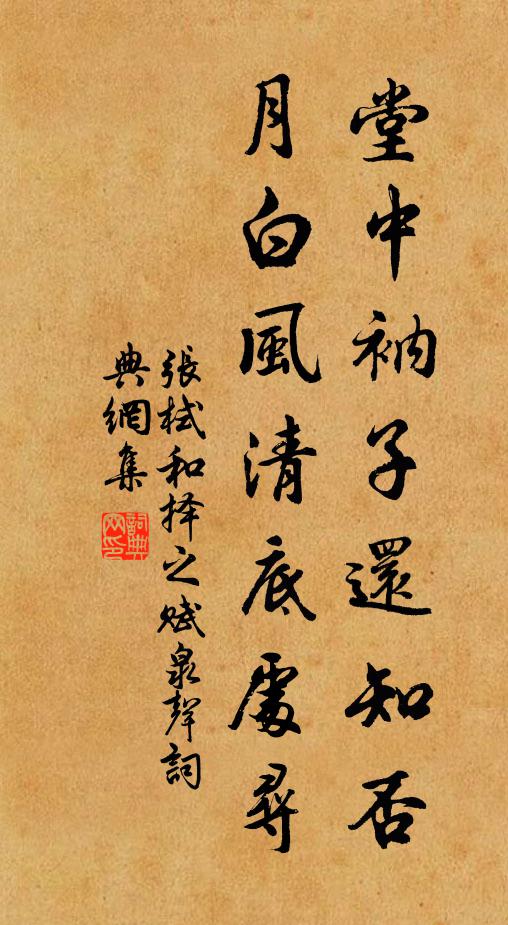 堂中衲子還知否
月白風清底處尋
張栻和择之赋泉聲詞
典網集
詞典
网印